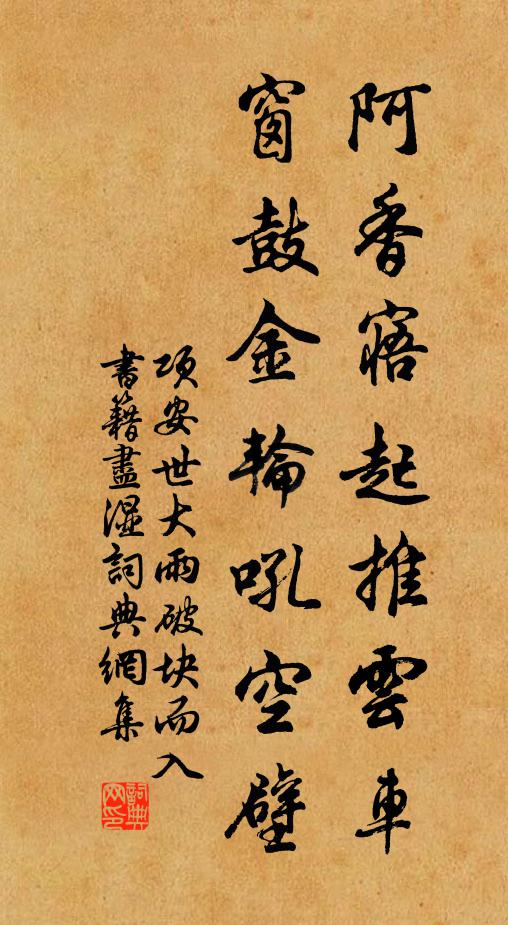 阿香寤起推雲車
窗鼓金輪吼空壁
項安世大雨破块而入
書籍盡濕詞典網集
詞典网印